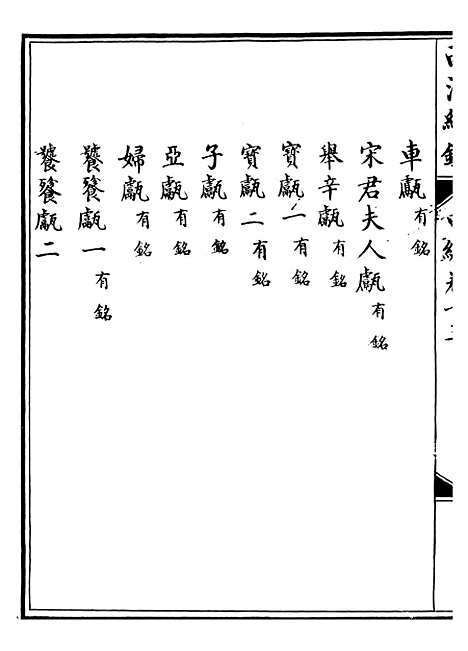 車甗有銘
宋君夫人甗有銘
舉辛甗有銘
寶甗一有銘
寶甗二有銘
子甗有銘
亞甗有銘
婦甗有銘
饕餮甗一有銘
饕餮甗二